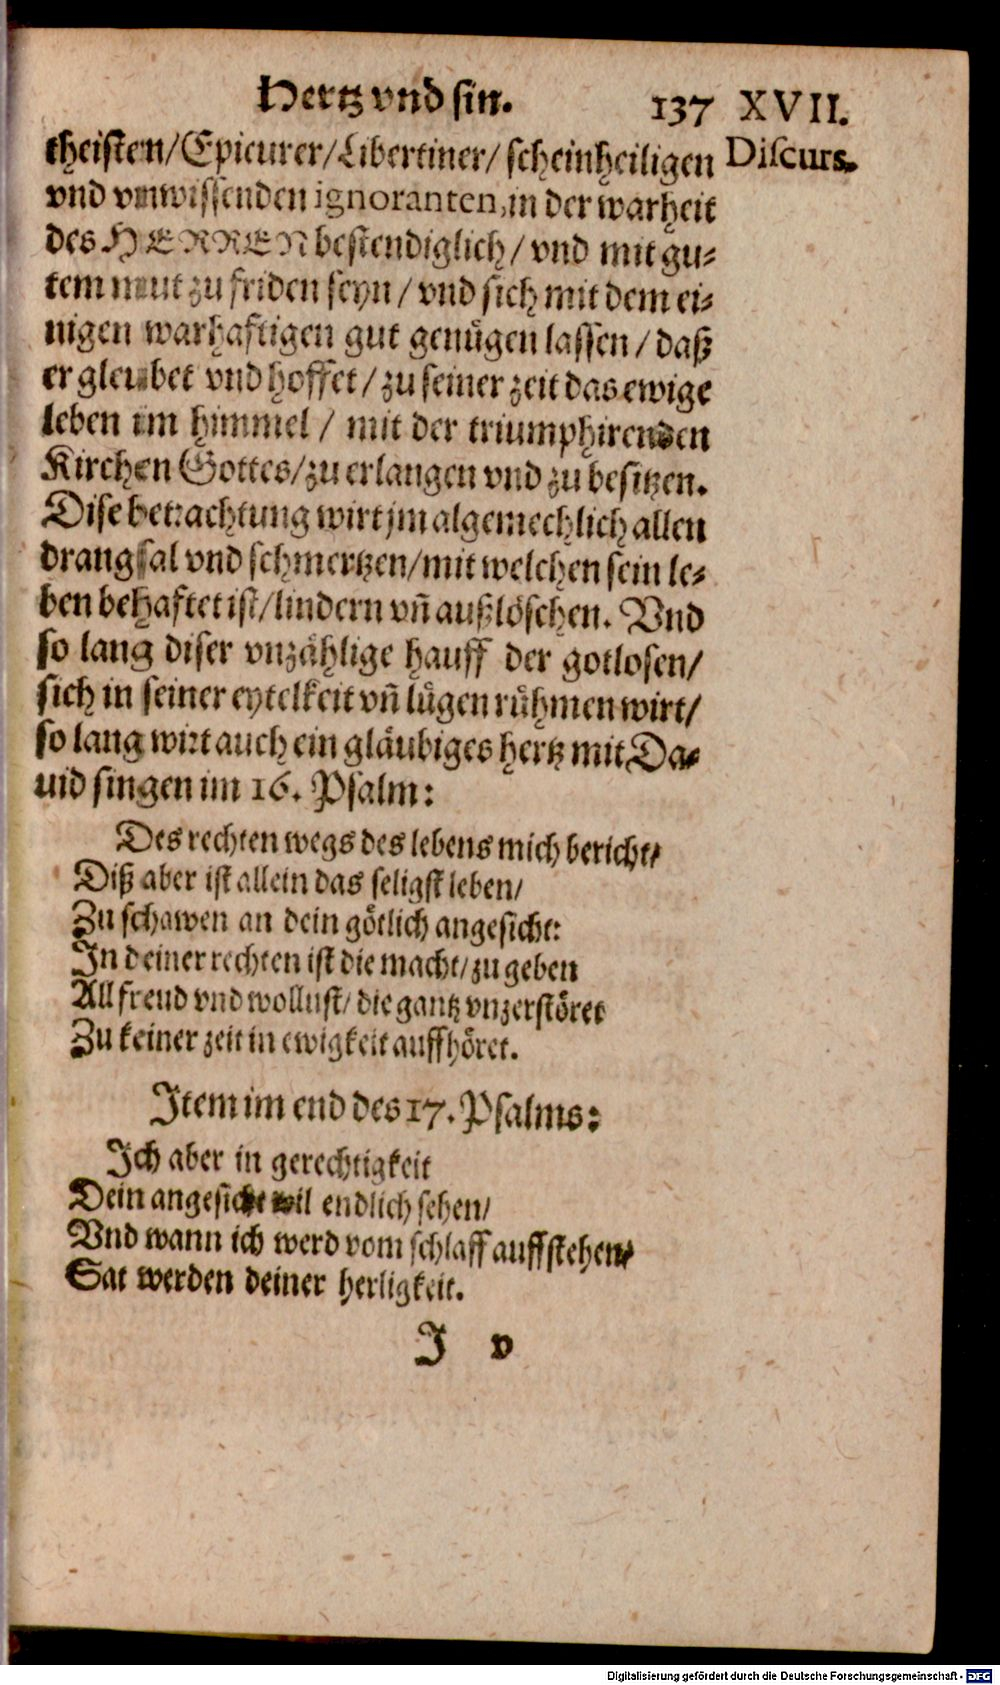 Hertz vnd sin. 137 XVII.
theisten/Epicurer/Libertiner/ scheinheiligen Discurs.
vnd vnwissenden ignoranten, in der warheit
des HERREN bestendiglich/ vnd mit gu-
tem mut zu friden seyn/ vnd sich mit dem ei-
nigen warhaftigen gut genuͤgen lassen/ daß
er gleubet vnd hoffet/ zu seiner zeit das ewige
leben im himmel/ mit der triumphirenden
Kirchen Gottes/ zu erlangen vnd zu besitzen.
Dise betrachtung wirt jm algemechlich allen
drangsal vnd schmertzen/ mit welchen sein le-
ben behaftet ist/ lindern vñ außloͤschen. Vnd
so lang diser vnzaͤhlige hauff der gotlosen/
sich in seiner eytelkeit vñ luͤgen ruͤhmen wirt/
so lang wirt auch ein glaͤubiges hertz mit Da-
uid singen im 16. Psalm:
Des rechten wegs des lebens mich bericht/
Diß aber ist allein das seligst leben/
Zu schawen an dein goͤtlich angesicht:
In deiner rechten ist die macht/ zu geben
All freud vnd wollust/ die gantz vnzerstoͤret
Zu keiner zeit in ewigkeit auffhoͤret.
Item im end des 17. Psalms:
Ich aber in gerechtigkeit
Dein angesicht wil endlich sehen/
Vnd wann ich werd vom schlaff auffstehen/
Sat werden deiner herligkeit.
I v
Digitalisierung gefördert durch die Deutsche Forschungsgemeinschaft - DFG